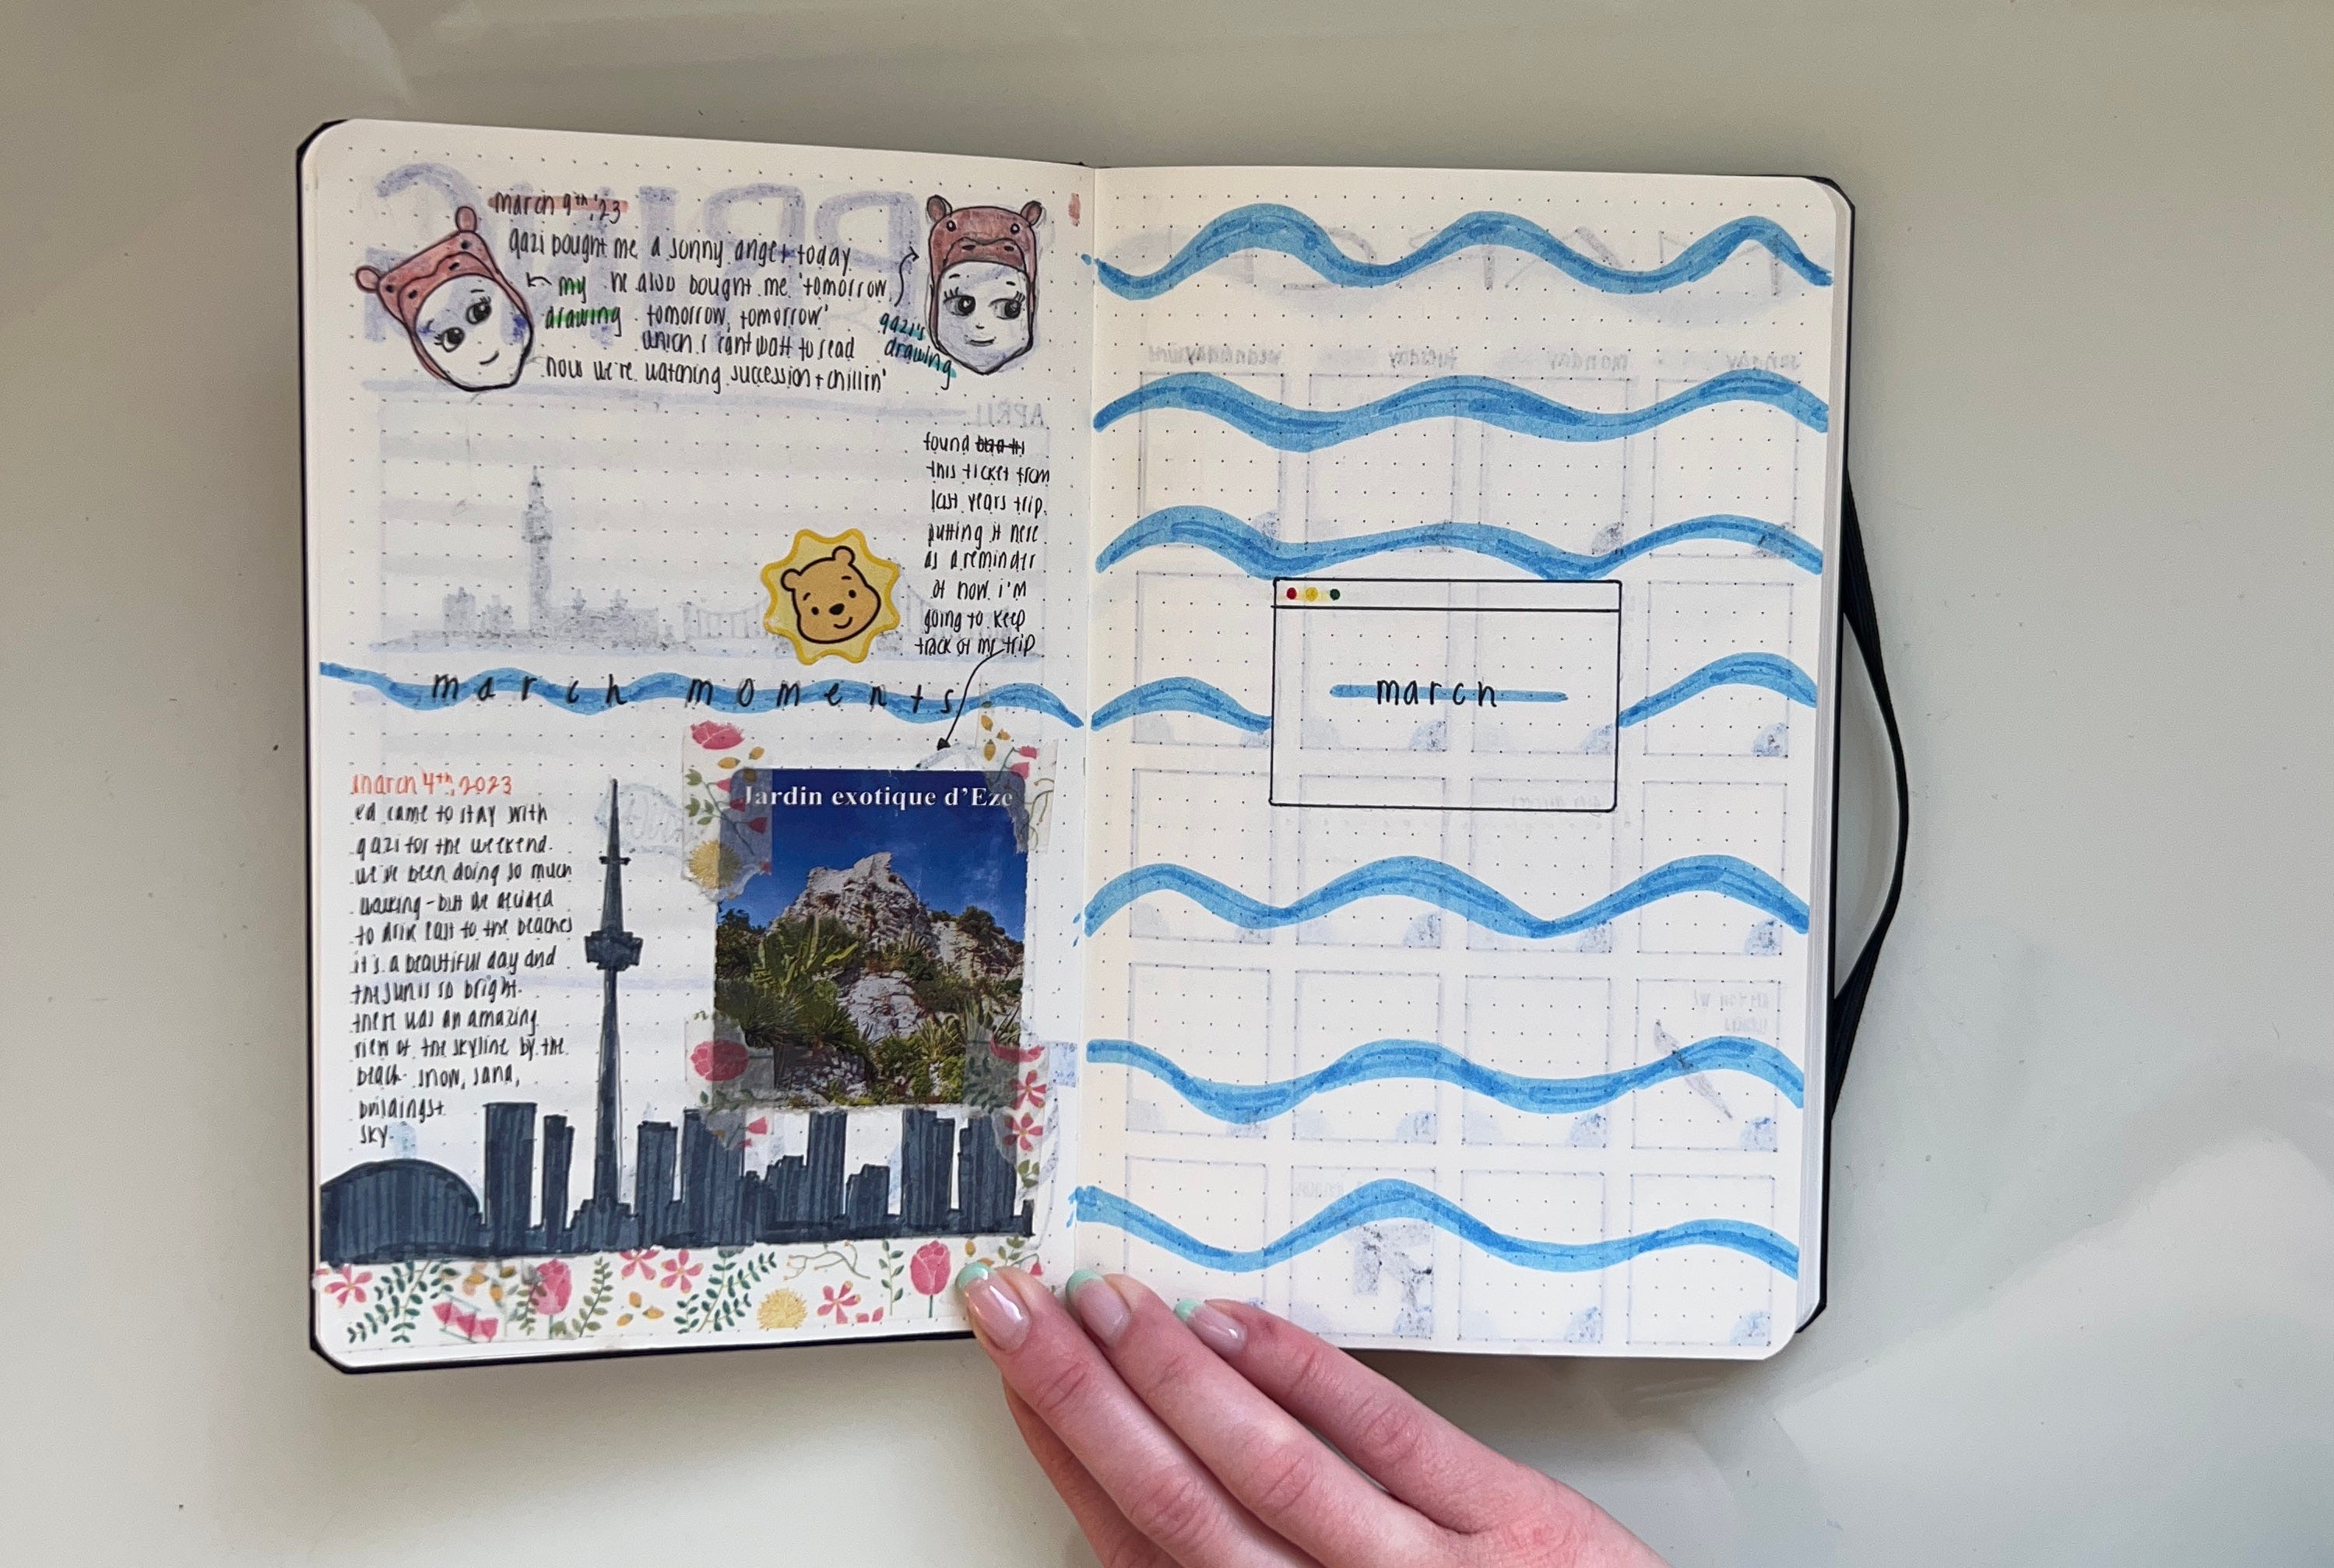 march 9th, '23
gazi bought me a sonny angel today.
my he also bought me 'tomorrow,
drawing tomorrow, tomorrow'
which i can't wait to read
now we're watching succession + chillin'
gazi's
drawing
APRIL
found
this ticket from
last years trip.
putting it here
as a reminder
of how i'm
going to keep
track of my trip
march moments
march 4th, 2023
ed came to stay with
gazi for the weekend.
we've been doing so much
walking - but we decided
to drive east to the beaches
it's a beautiful day and
the sun is so bright.
there was an amazing
view of the skyline by the
beach - snow, sand,
buildings +
sky.
Jardin exotique d'Eze
march